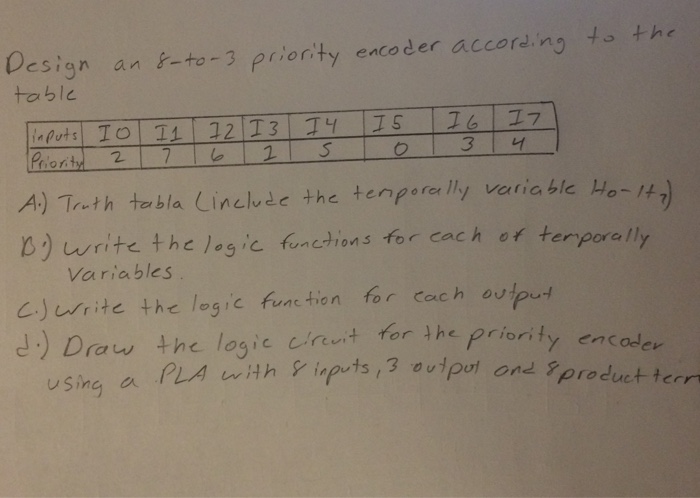 Design an 8-to-3 priority encoder according to the
table
inputs I0 I1 I2 I3 I4 I5 I6 I7
Priority 2 7 6 1 5 0 3 4
A.) Truth tabla (include the temporally variable H0-H7)
B.) write the logic functions for each of temporally
variables.
C.) write the logic function for each output
d.) Draw the logic circuit for the priority encoder
using a PLA with 8 inputs, 3 output and 8 product term